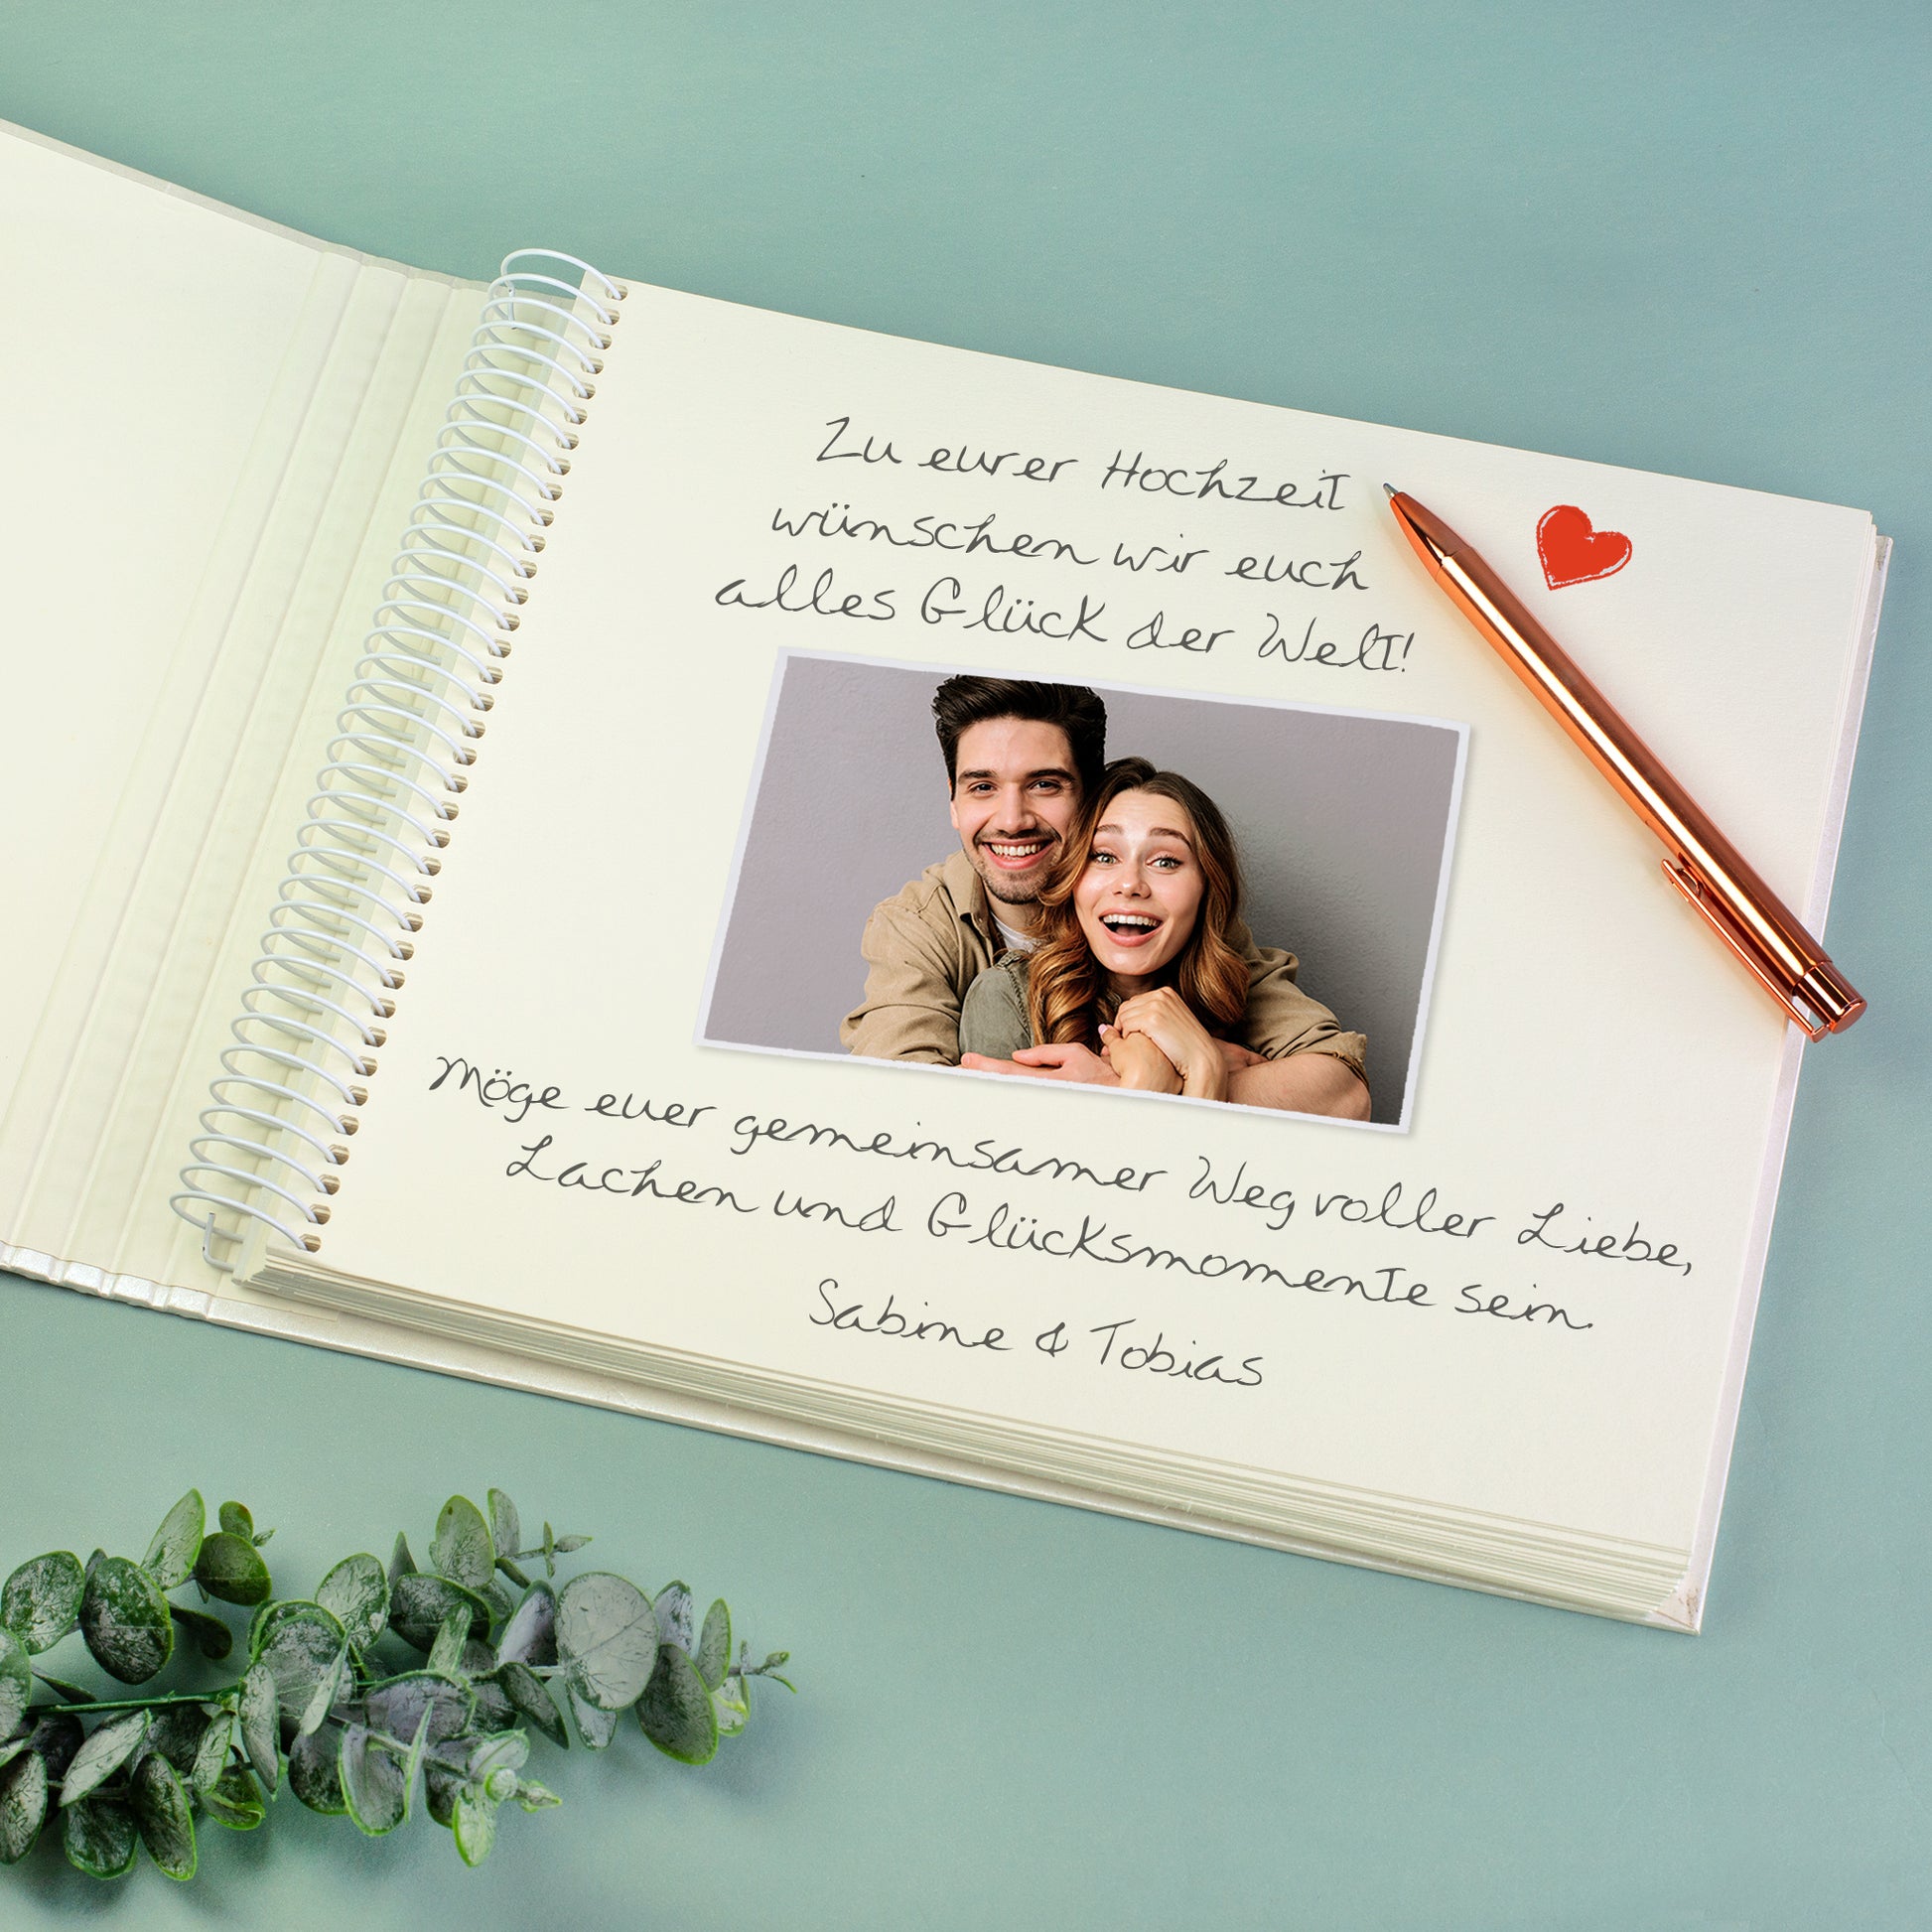 Zu eurer Hochzeit
wünschen wir euch
alles Glück der Welt!
Möge euer gemeinsamer Weg voller Liebe,
Lachen und Glücksmomente sein.
Sabine & Tobias